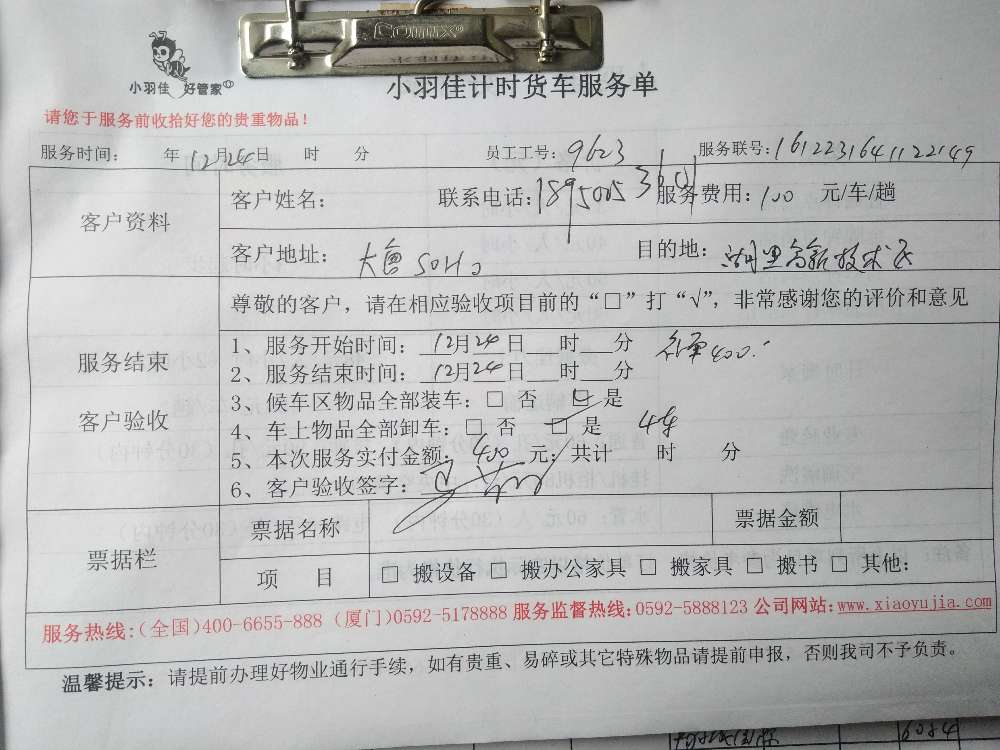 Comix
小羽佳 好管家
小羽佳计时货车服务单
请您于服务前收拾好您的贵重物品！
服务时间： 年12月24日 时 分 员工工号：9623 服务联号：1612231641122149
客户资料 客户姓名： 联系电话：18950053601 服务费用：100 元/车/趟
客户地址：大唐SOHO 目的地：湖里高新技术区
尊敬的客户，请在相应验收项目前的“□”打“√”，非常感谢您的评价和意见
服务结束
客户验收
1、服务开始时间：12月24日 时 分 400.
2、服务结束时间：12月24日 时 分
3、候车区物品全部装车：□ 否 □ 是
4、车上物品全部卸车：□ 否 □ 是 4车
5、本次服务实付金额：400 元；共计 时 分
6、客户验收签字：
票据栏 票据名称 票据金额
项 目 □ 搬设备 □ 搬办公家具 □ 搬家具 □ 搬书 □ 其他：
服务热线：(全国)400-6655-888 (厦门)0592-5178888 服务监督热线：0592-5888123 公司网站：www.xiaoyujia.com
温馨提示：请提前办理好物业通行手续，如有贵重、易碎或其它特殊物品请提前申报，否则我司不予负责。